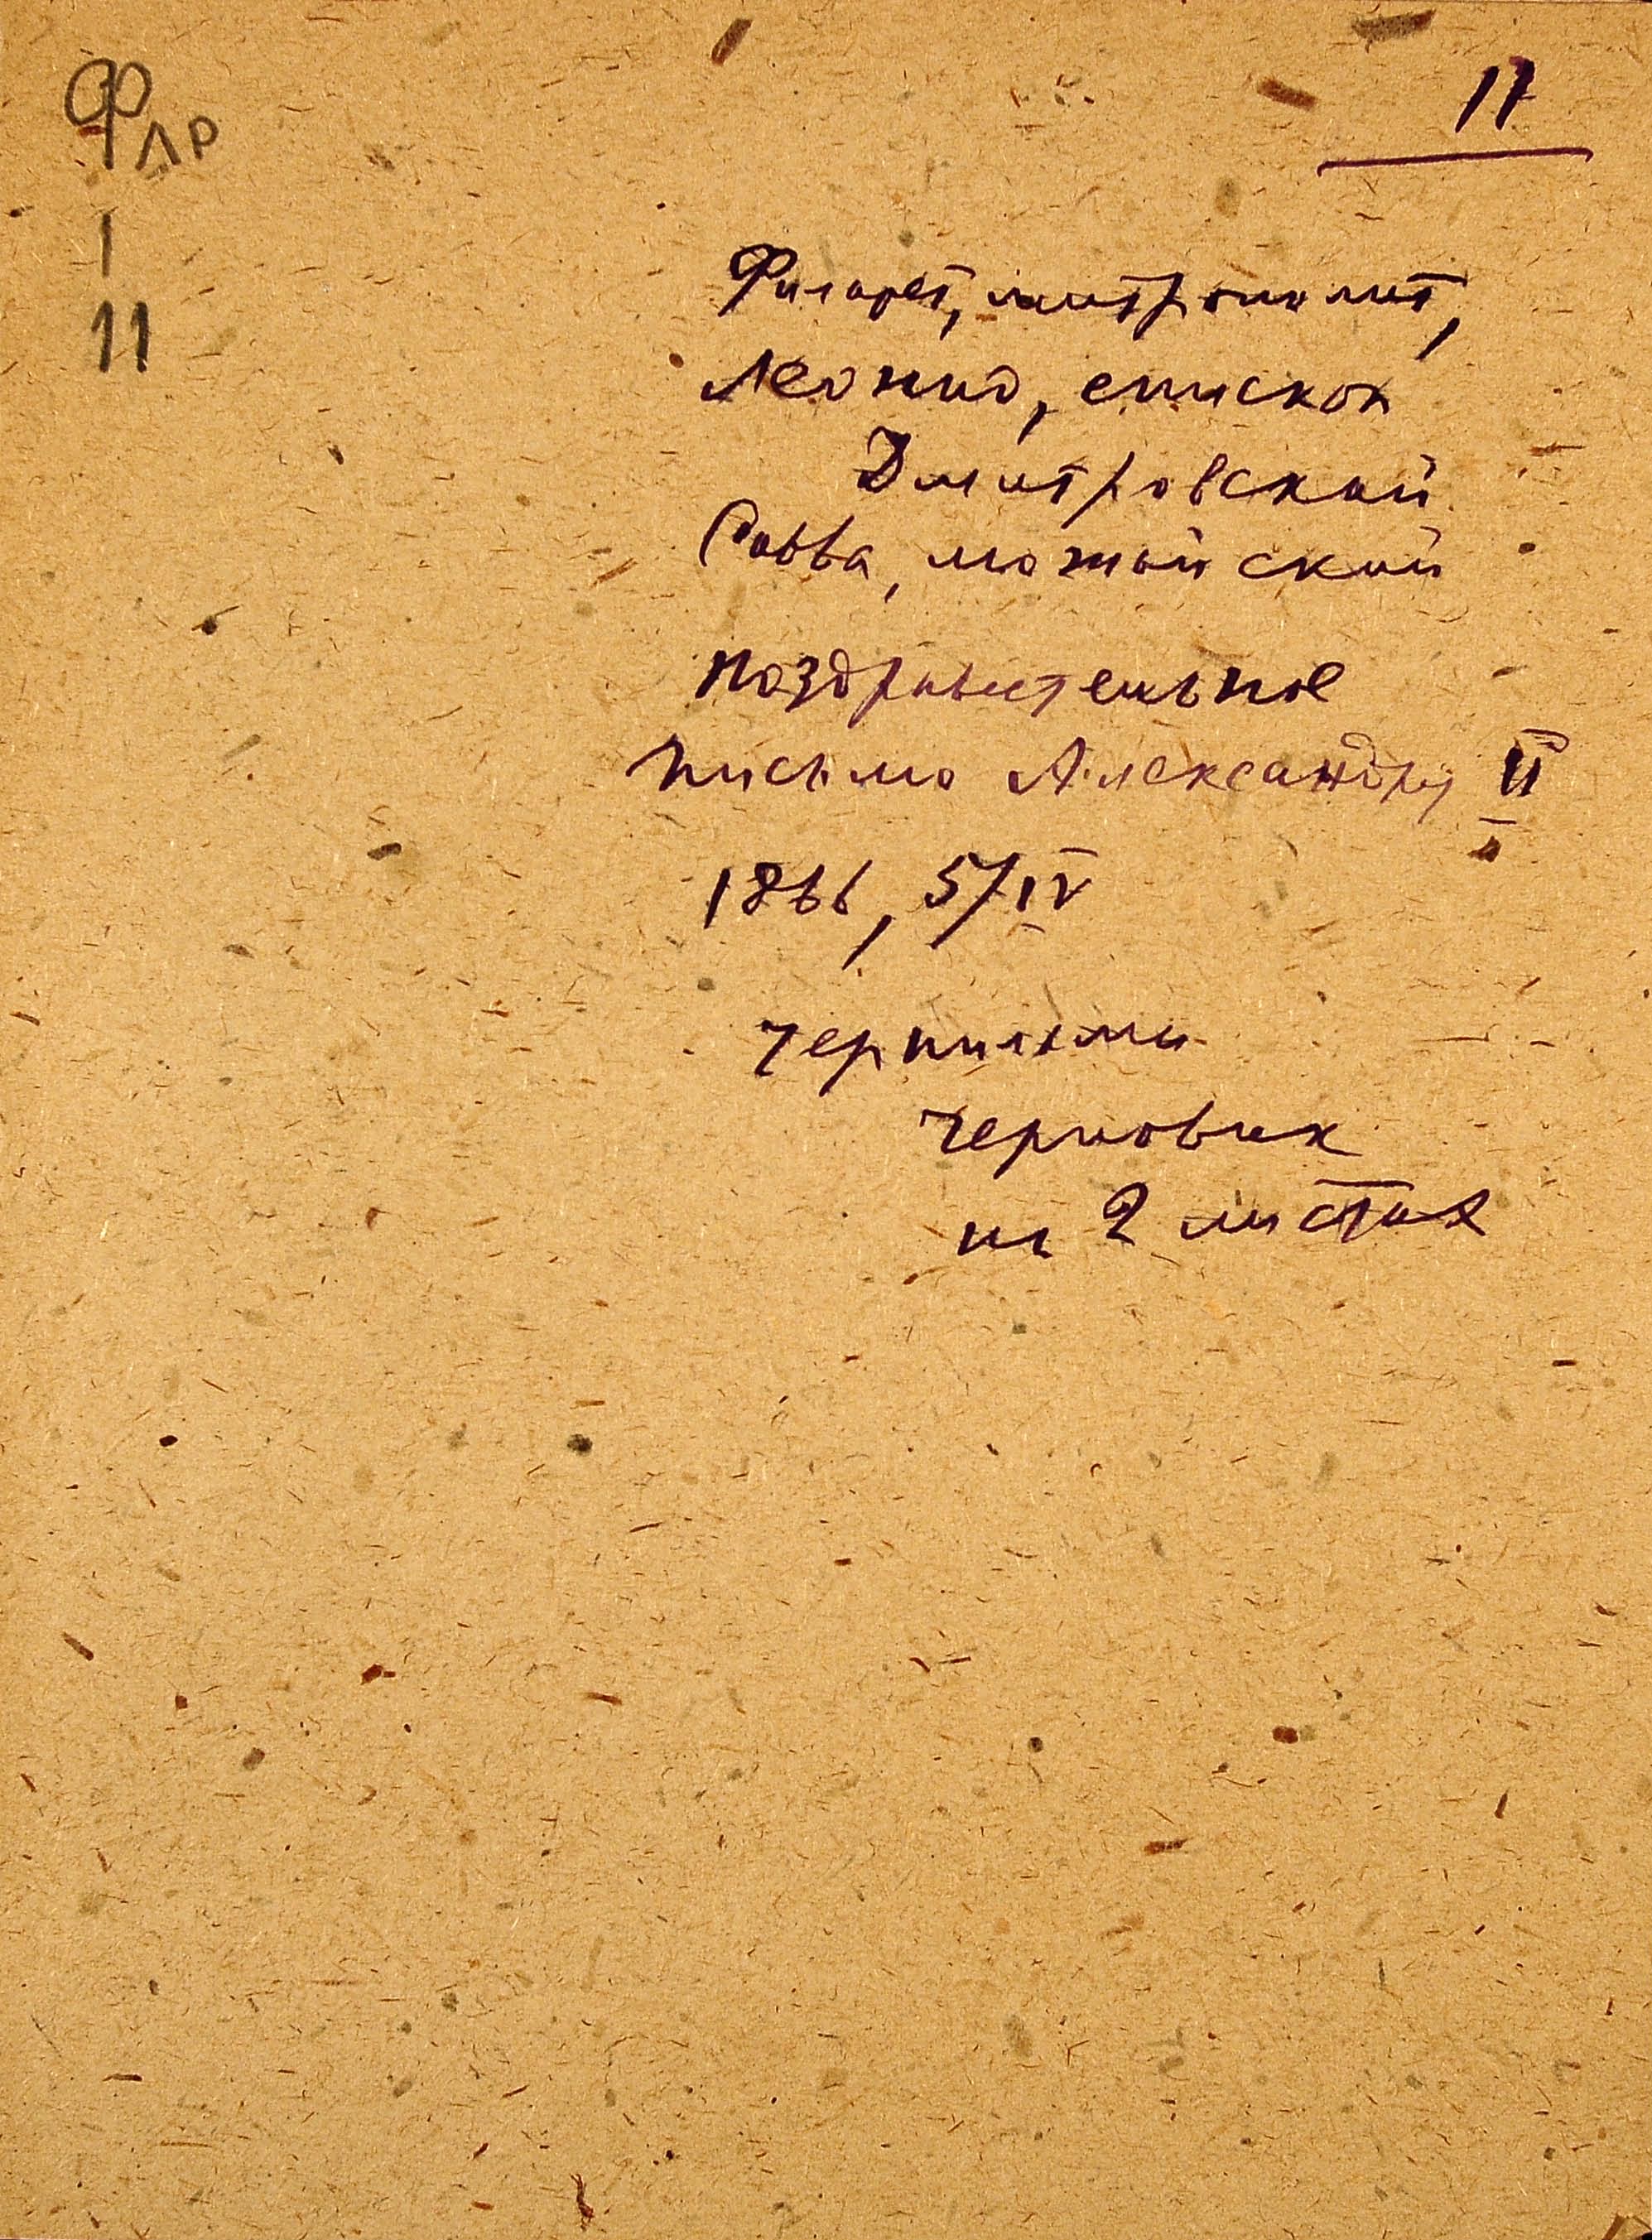 ФЛР
1
11
11
Филарет, митрополит,
Леонид, епископ
Дмитровский
Савва, можайский
поздравительное
письмо Александру II
1866, 5/IV
чернилами
черновик
на 2 листах